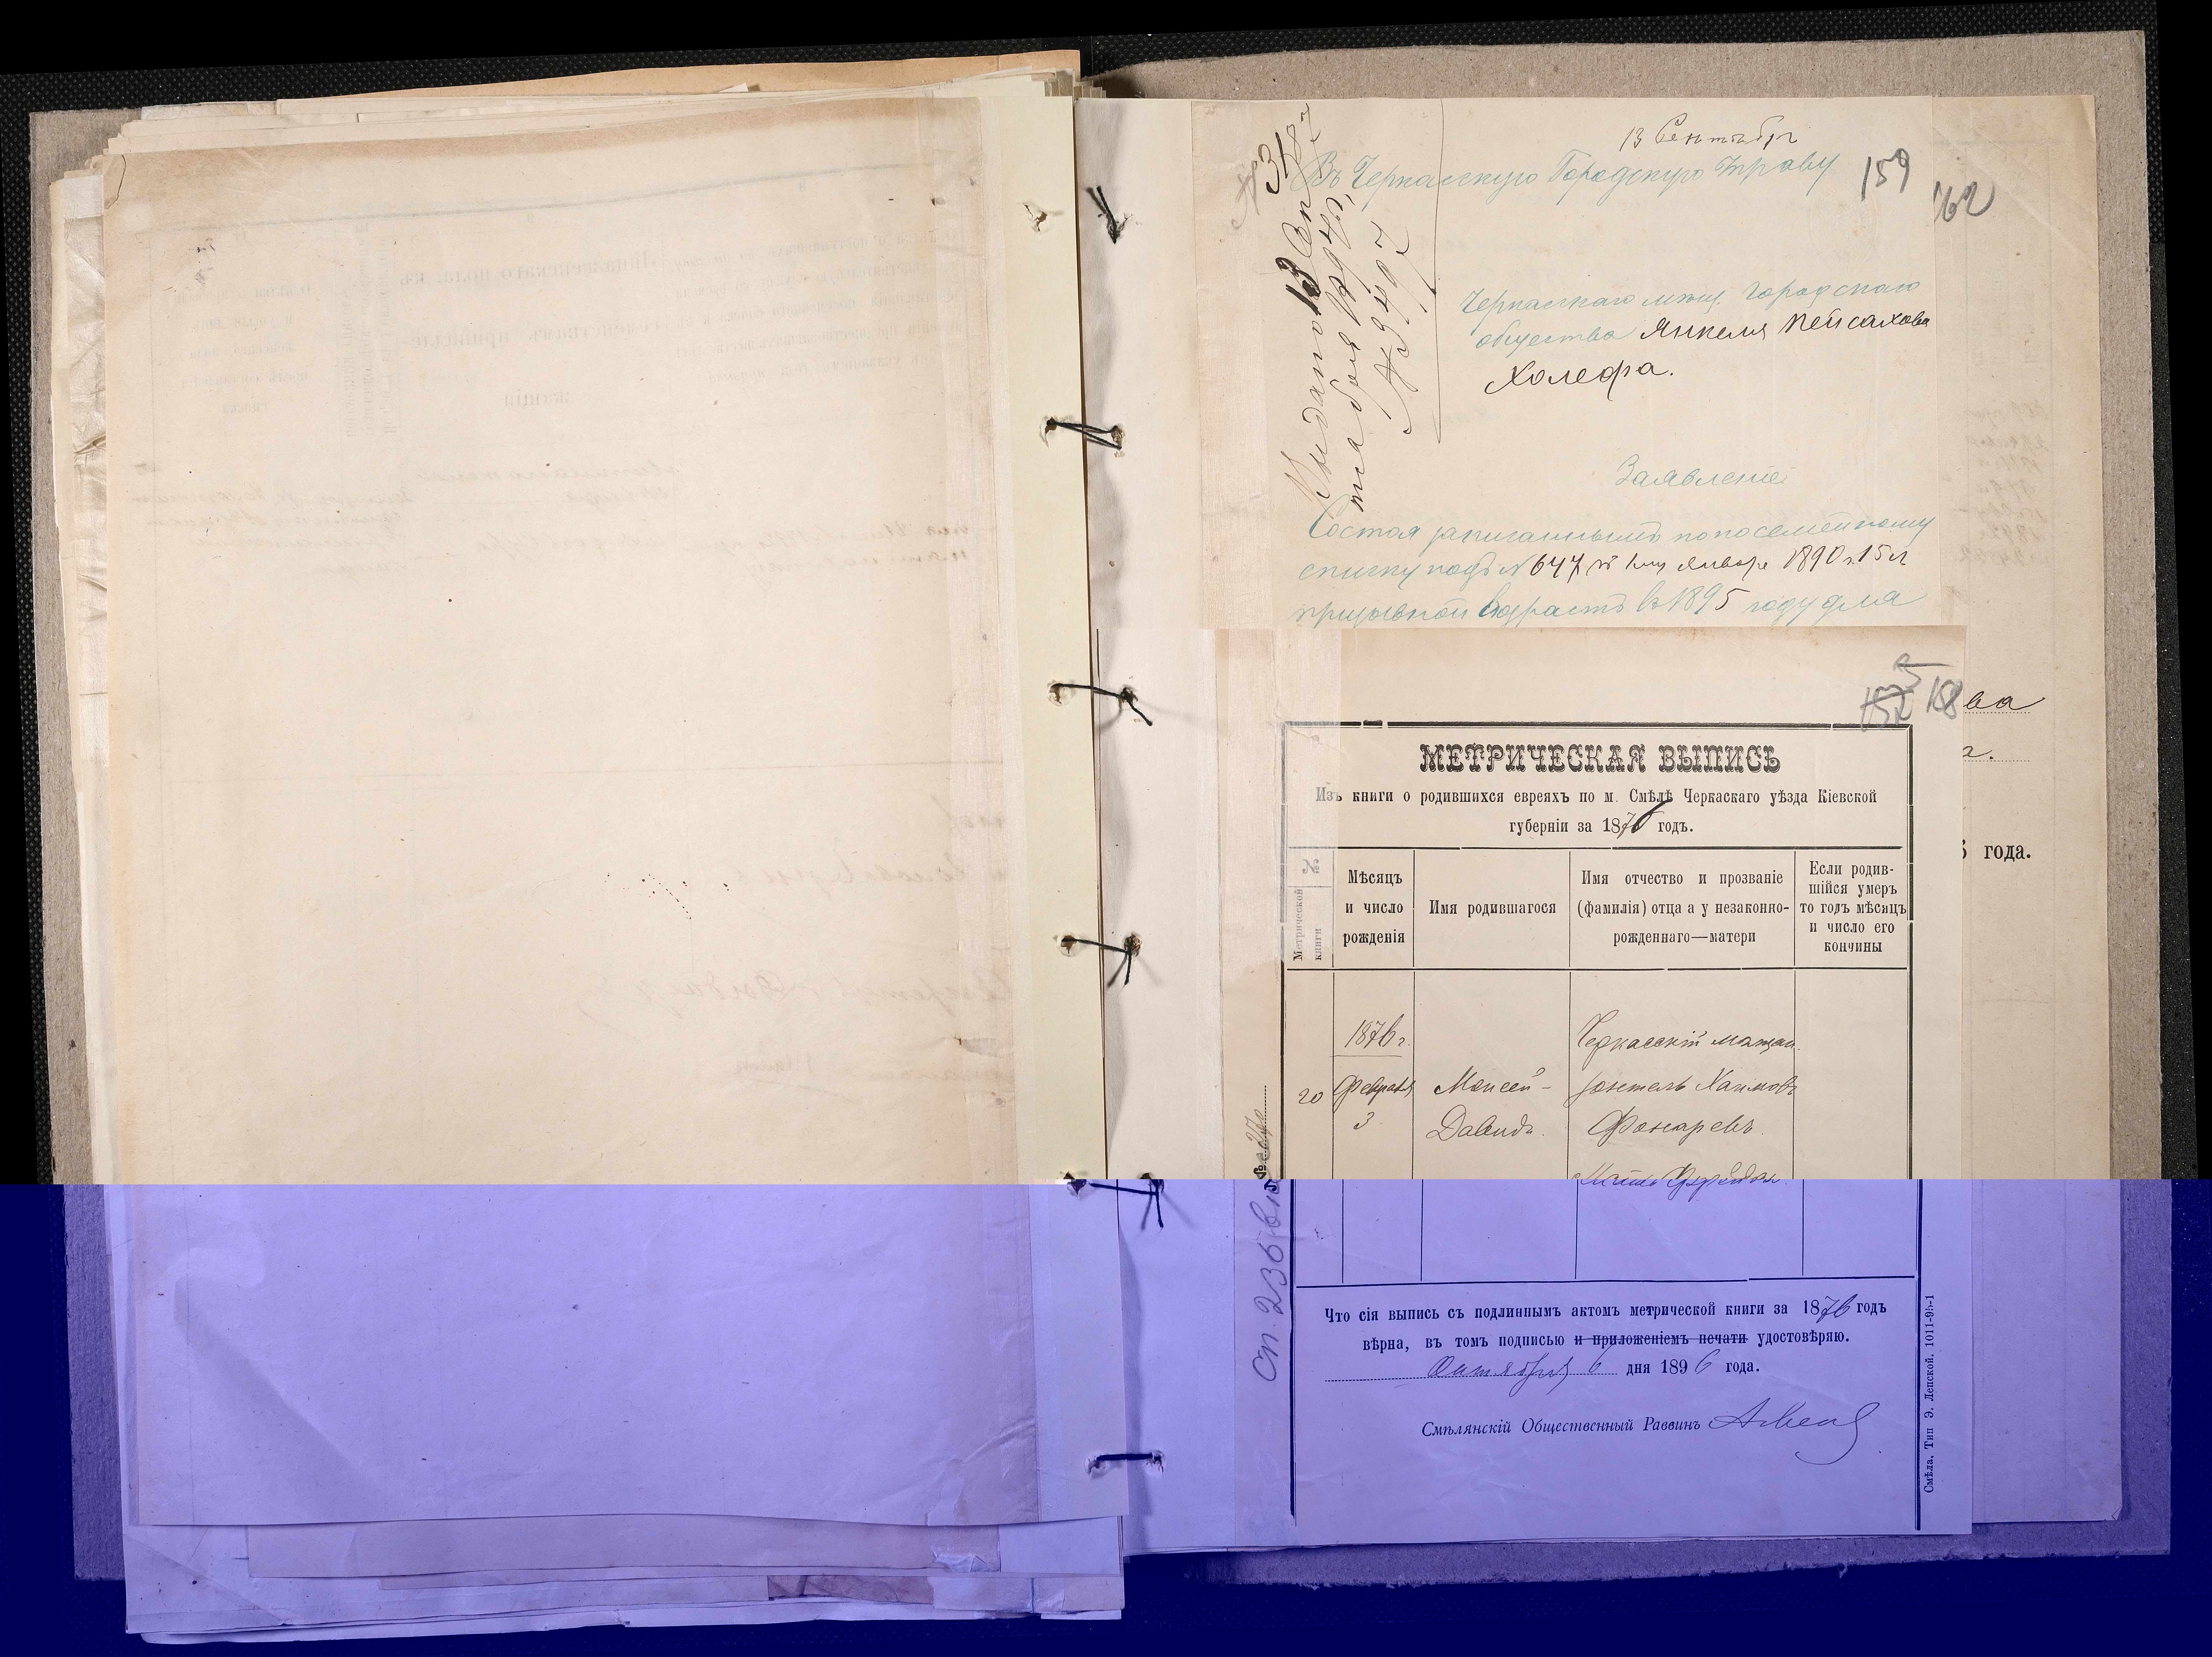 13 Сентября
Въ Черкасскую Городскую Управу
159
162
Черкасскаго мѣщ. Городскаго
общества Янкеля Пейсахова
Холефа.
№ 9497
Заявленіе
Состоя записаннымъ по посемейному
списку подъ № 647
Января 1890 г. 15 л
призывной возрастъ въ 1895 году для
ва
г.
года.
МЕТРИЧЕСКАЯ ВЫПИСЬ
Изъ книги о родившихся евреяхъ по м. Смѣлѣ Черкаскаго уѣзда Кіевской
губерніи за 1876 годъ.
№
Метрической
книги
Мѣсяцъ
и число
рожденія
Имя родившагося
Имя отчество и прозваніе
(фамилія) отца а у незаконно-
рожденнаго—матери
Если родив-
шійся умеръ
то годъ мѣсяцъ
и число его
кончины
20
1876 г.
Февраля
3
Моисей-
Давидъ.
Черкасскій мѣщан.
Хаимовъ
Фонаревъ.
Что сія выпись съ подлиннымъ актомъ метрической книги за 1876 годъ
вѣрна, въ томъ подписью и приложеніемъ печати удостовѣряю.
Октября 6 дня 1896 года.
Смѣлянскій Общественный Раввинъ
Смѣла, Тип Э. Лепской. 1011-95-1